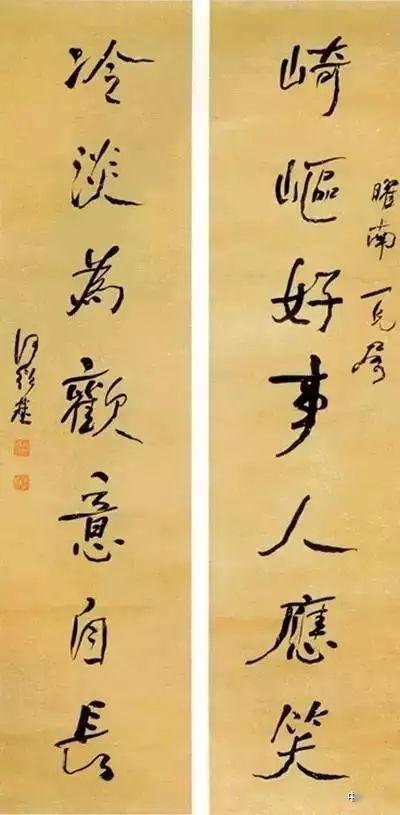 曜南一兄屬
崎嶇好事人應笑
冷淡為歡意自長
何紹基